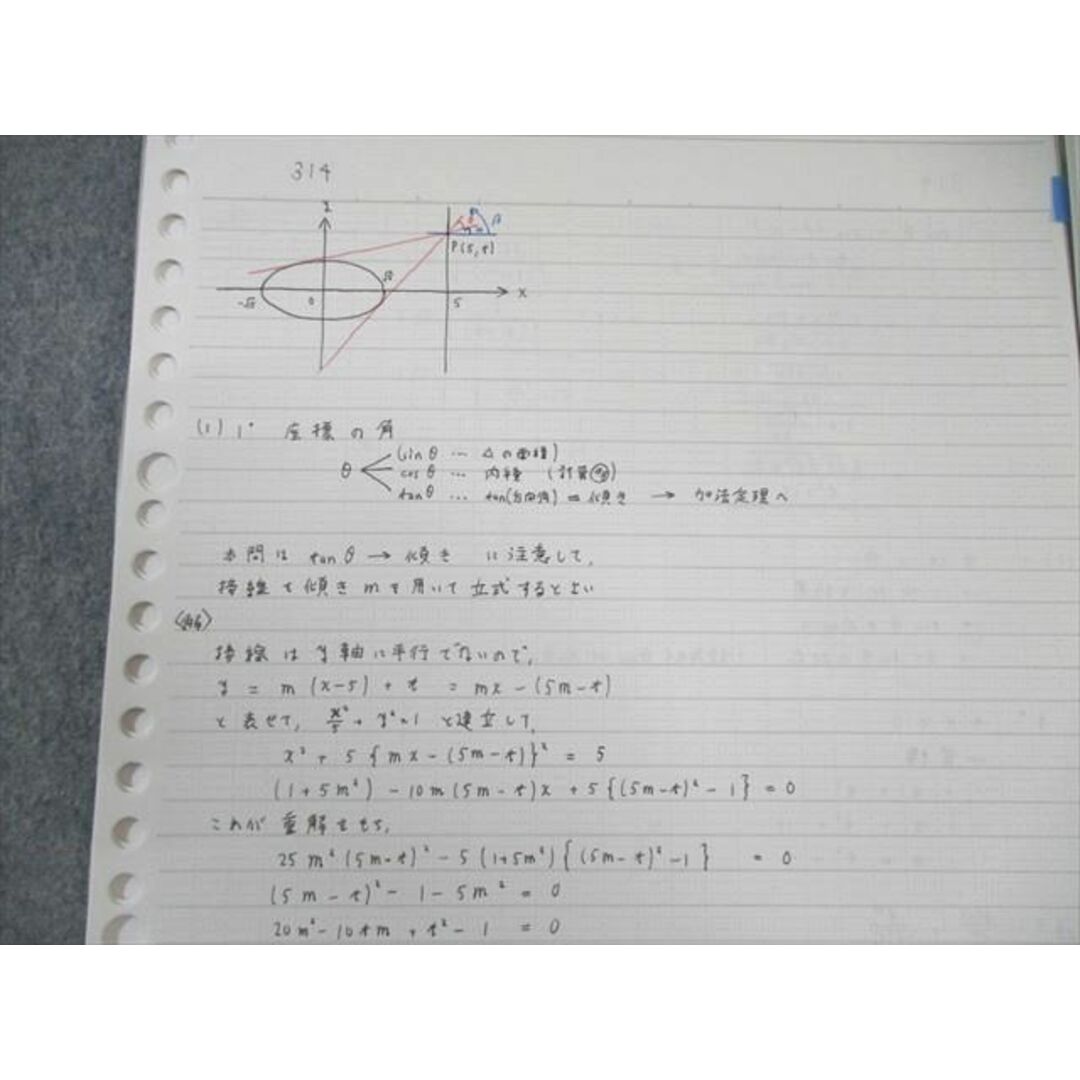 314
y
P(5, t)
-√5 0 √5 5 x
(1) 1° 座標の角
θ
(sin θ … △の面積)
cos θ … 内積 (計算)
tan θ … tan(方向角) = 傾き → 加法定理へ
本問は tan θ → 傾き に注意して,
接線を傾き m を用いて立式するとよい
<解>
接線は y軸に平行でないので,
y = m (x-5) + t = mx - (5m-t)
と表せて, x²/5 + y² = 1 と連立して,
x² + 5 {mx - (5m-t)}² = 5
(1+5m²) - 10m (5m-t)x + 5 {(5m-t)² - 1} = 0
これが 重解をもち,
25 m² (5m-t)² - 5 (1+5m²) {(5m-t)² -1} = 0
(5m - t)² - 1 - 5m² = 0
20m² - 10tm + t² - 1 = 0